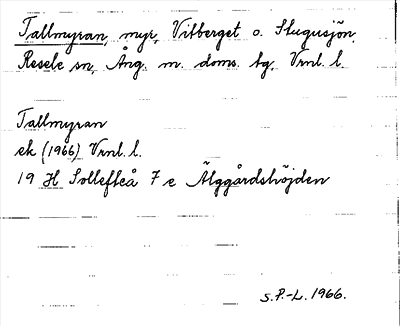 Tallmyran, myr, Vitberget o. Stugusjön,
Resele sn, Ång. m. doms. bg, Vrnl. l.
Tallmyran
ek (1966) Vrnl. l.
19 H Sollefteå 7 e Älggårdshöjden
S.P.-L. 1966.